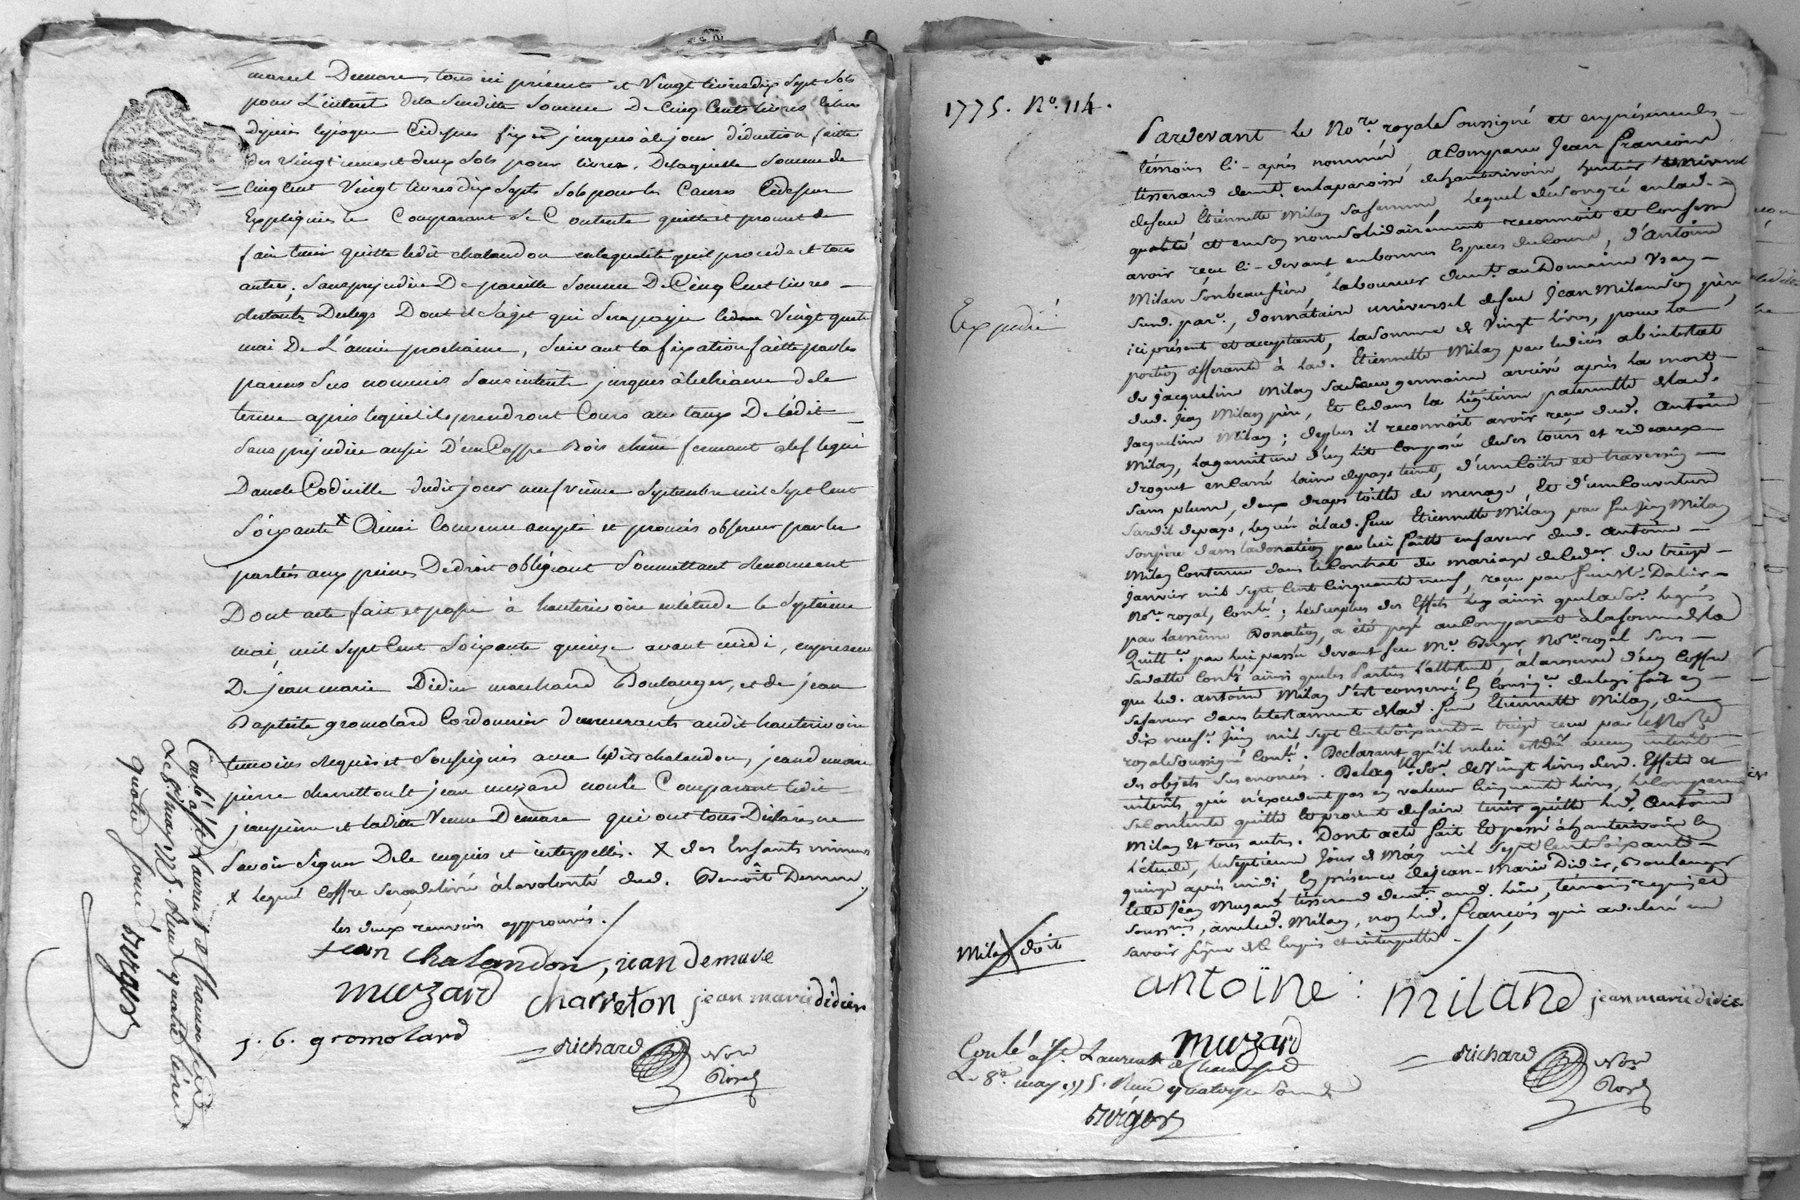 marcel Demare, tous ici présents et Vingt livres dix Sept Sols
pour L'interêt de la Susditte Somme De Cinq Cents livres
Depuis lépoque Cidessus fixée jusques à ce jour déduction faitte
des Vingtiemes et deux Sols pour livres. De laquelle Somme de
Cinq Cent Vingt livres dix Septs Sols pour les Causes Cidessus
Expliquées le Comparant Se Contente quitte et promet de
faire tenir quitte ledit chalandon en la qualité qu'il procede et tous
autres, Sans préjudice De pareille Somme De Cinq Cent livres
restante Dulegs Dont il S'agit qui Sera payée Vingt quatre
mai De L'année prochaine, Suivant la fixation faitte par les
parens Sus nommés Sans interêts jusques à lechéance de le
terme après lequel ils prendront Cours au taux De lédit
Sans préjudice aussi D'un Coffre Bois chêne fermant à clef legué
Dans le Codicille dudit jour neufvieme Septembre mil Sept Cent
Soixante x Ainsi Convenu accepté et promis observer par les
parties aux peines De droit obligeant Soumettant Renonceant
Dont acte fait et passé à hauterivoire en létude le Septieme
mai, mil Sept Cent Soixante quinze avant midi, en présence
De jean marie Didier marchand Boulanger, et de jean
Baptiste gromolard Cordonnier Demeurants audit hauterivoire
temoins Requis et Soussignés avec lesdits chalandon, jean demare
pierre charretton et jean muzard non le Comparant ledit
jean pierre et laditte Veuve Demare qui ont tous Déclaré ne
Savoir Signer De le enquis et interpellés. x des Enfants mineurs
x lequel Coffre Sera delivré à la volonté dud. Benoît Demare
les deux renvois approuvés.
jean chalandon, jean demare
muzard charreton jean marie didier
j. b. gromolard
Richard Nore
Royal
Conté à St. Laurent de Chamousset
Le 8e. may 1775. Reçu quatre livres
quatre Sous
Berger
1775. No. 114.
Pardevant le No.re royal Soussigné et en présence des
témoins ci-après nommés, a Comparu Jean François
tisserand demt. en la paroisse de hauterivoire, héritier universel
defeue Etiennette Milan Sa femme, lequel de Son gré en lad.
qualité et en Son nom Solidairement reconnoit et Confesse
avoir reçu ci-devant en bonnes Especes du Cours, d'Antoine
Milan Son beaufrère laboureur demt. au Domaine
Susd. par.e, donnataire universel defeu Jean Milan Son père
ici présent et acceptant, la Somme de Vingt livres, pour la
portion afferante à lad. Etiennette Milan par ledécès abintestat
de Jacqueline Milan Sa Soeur germaine arrivé après la mort
dud. Jean Milan père, Et Cedans la légitime paternelle de lad.
Jacqueline Milan; deplus il reconnoit avoir reçu dud. Antoine
Milan, la garniture d'un lit Composée de Ses tours et rideaux
droguet en Carré laine de pays teint, d'un Coître et traversin
Sans plume, deux draps toille de menage, Et d'une Couverture
Sardit depays, legués à lad. feue Etiennette Milan par feu Jean Milan
Son père dans la donation par lui faitte en faveur dud. Antoine
Milan Contenue dans le Contrat de mariage de Ceder. du treize
Janvier mil Sept Cent Cinquante neuf, reçu par feu Me. Dalin
No.re royal, Conté; le Surplus des Effets légués ainsi que la So.e leguée
par la même Donation, a été payé au Comparant à la forme de la
Quitt.ce par lui passée devant feu Me. Berger No.re royal Sous
Sa datte Contée ainsi que les Parties l'attestent, à la reserve d'un Coffre
que led. Antoine Milan S'est conservé En Conséq.ce du legs fait en
Sa faveur dans le testament de lad. feue Etiennette Milan, du
dix neufe. Juin mil Sept Cent Soixante-treize reçu par le No.re
royal Soussigné Conté; Declarant qu'il ne lui est dû aucun interêt
des objets Sus énoncés. De laq.lle So.e de Vingt livres Susd. Effets et
interêts, qui n'excedent pas en valeur Cinquante livres, le Comparant
Se Contente quitte et promet de faire tenir quitte led. Antoine
Milan Et tous autres. Dont acte fait et passé à hauterivoire En
l'étude, le Septieme Jour de May mil Sept Cent Soixante
quinze après midi, En présence de Jean-Marie Didier, Boulanger
Et de Jean Muzard tisserand demt. aud. lieu, témoins requis et
Soussnés., avec led. Milan, non led. François qui a declaré ne
Savoir signer de Ce Enquis et interpellé.
Expedié
Milan doit
antoine: miland jean marie didier
muzard
Richard Nore
Royal
Conté à St. Laurent de Chamousset
Le 8e. may 1775. Reçu quatorze Sous
Berger